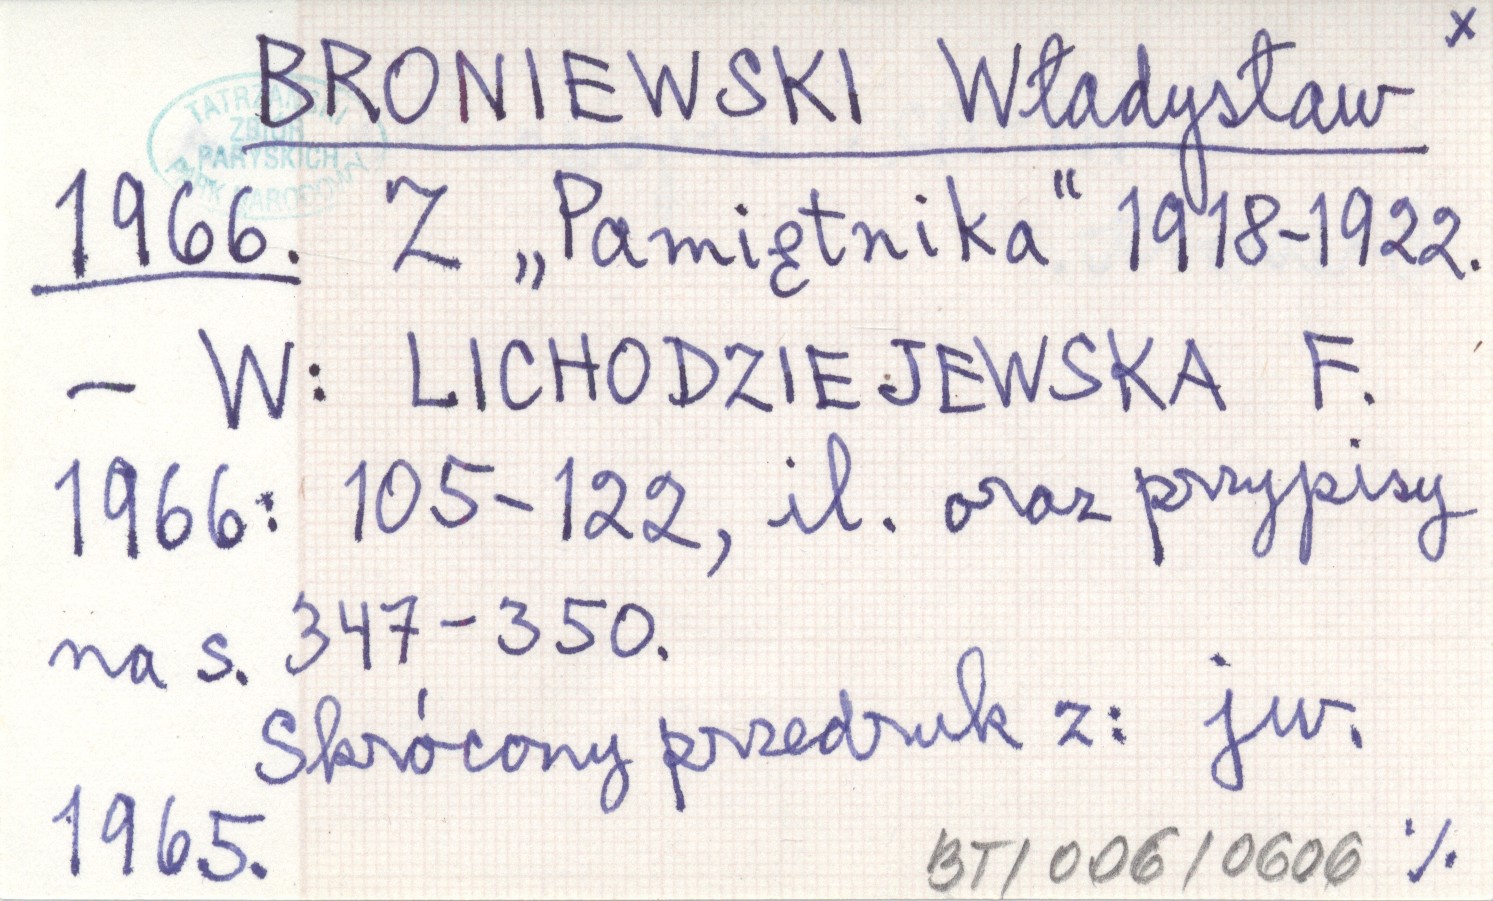 BRONIEWSKI Władysław x
TATRZAŃSKI
ZBIÓR
PARYSKICH
PARK NARODOWY
1966. Z „Pamiętnika“ 1918-1922.
– W: LICHODZIEJEWSKA F.
1966: 105-122, il. oraz przypisy
na s. 347-350.
Skrócony przedruk z: jw.
1965.
BT/006/0606 ·/.